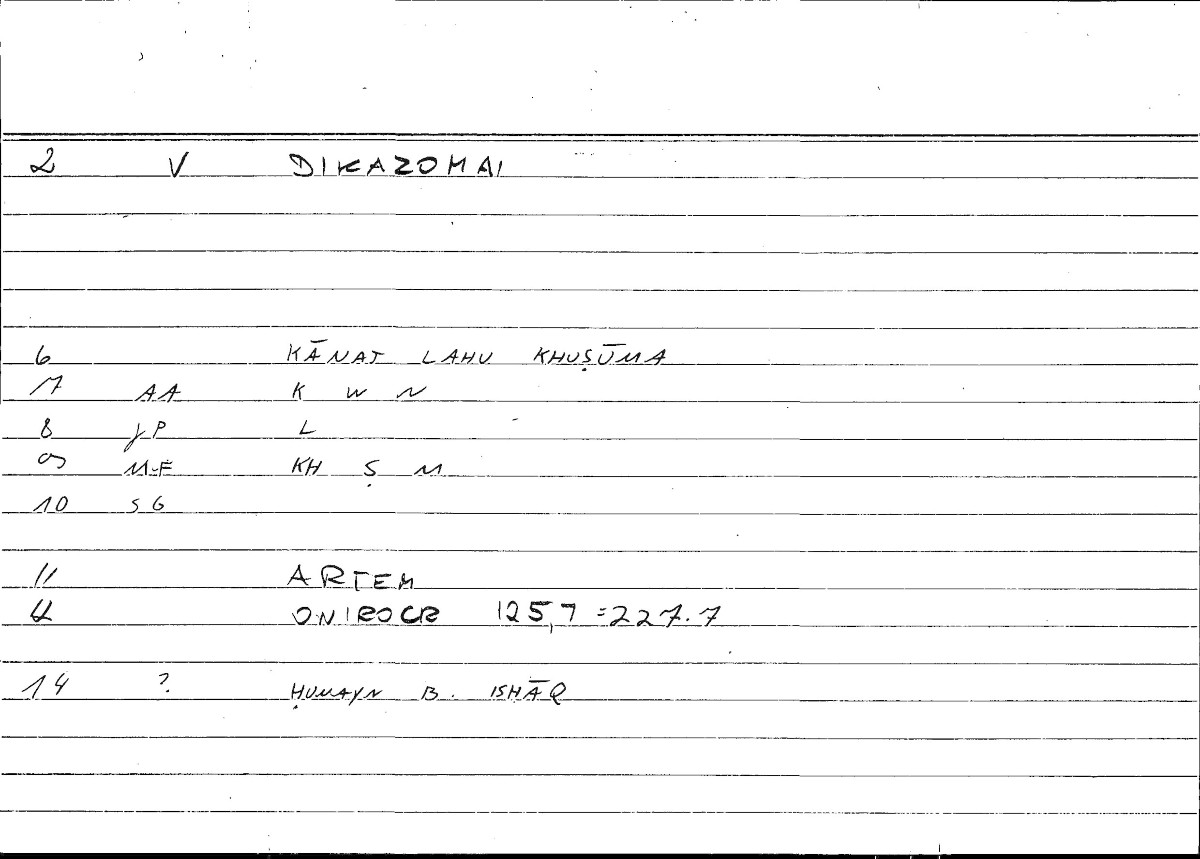 2 V DIKAZOMAI
6 KĀNAT LAHU KHUṢŪMA
7 AA K W N
8 JP L
9 M-F KH Ṣ M
10 SG
11 ARTEM
12 ONIROCR 125,7 = 227.7
14 ? ḤUNAYN B. ISḤĀQ